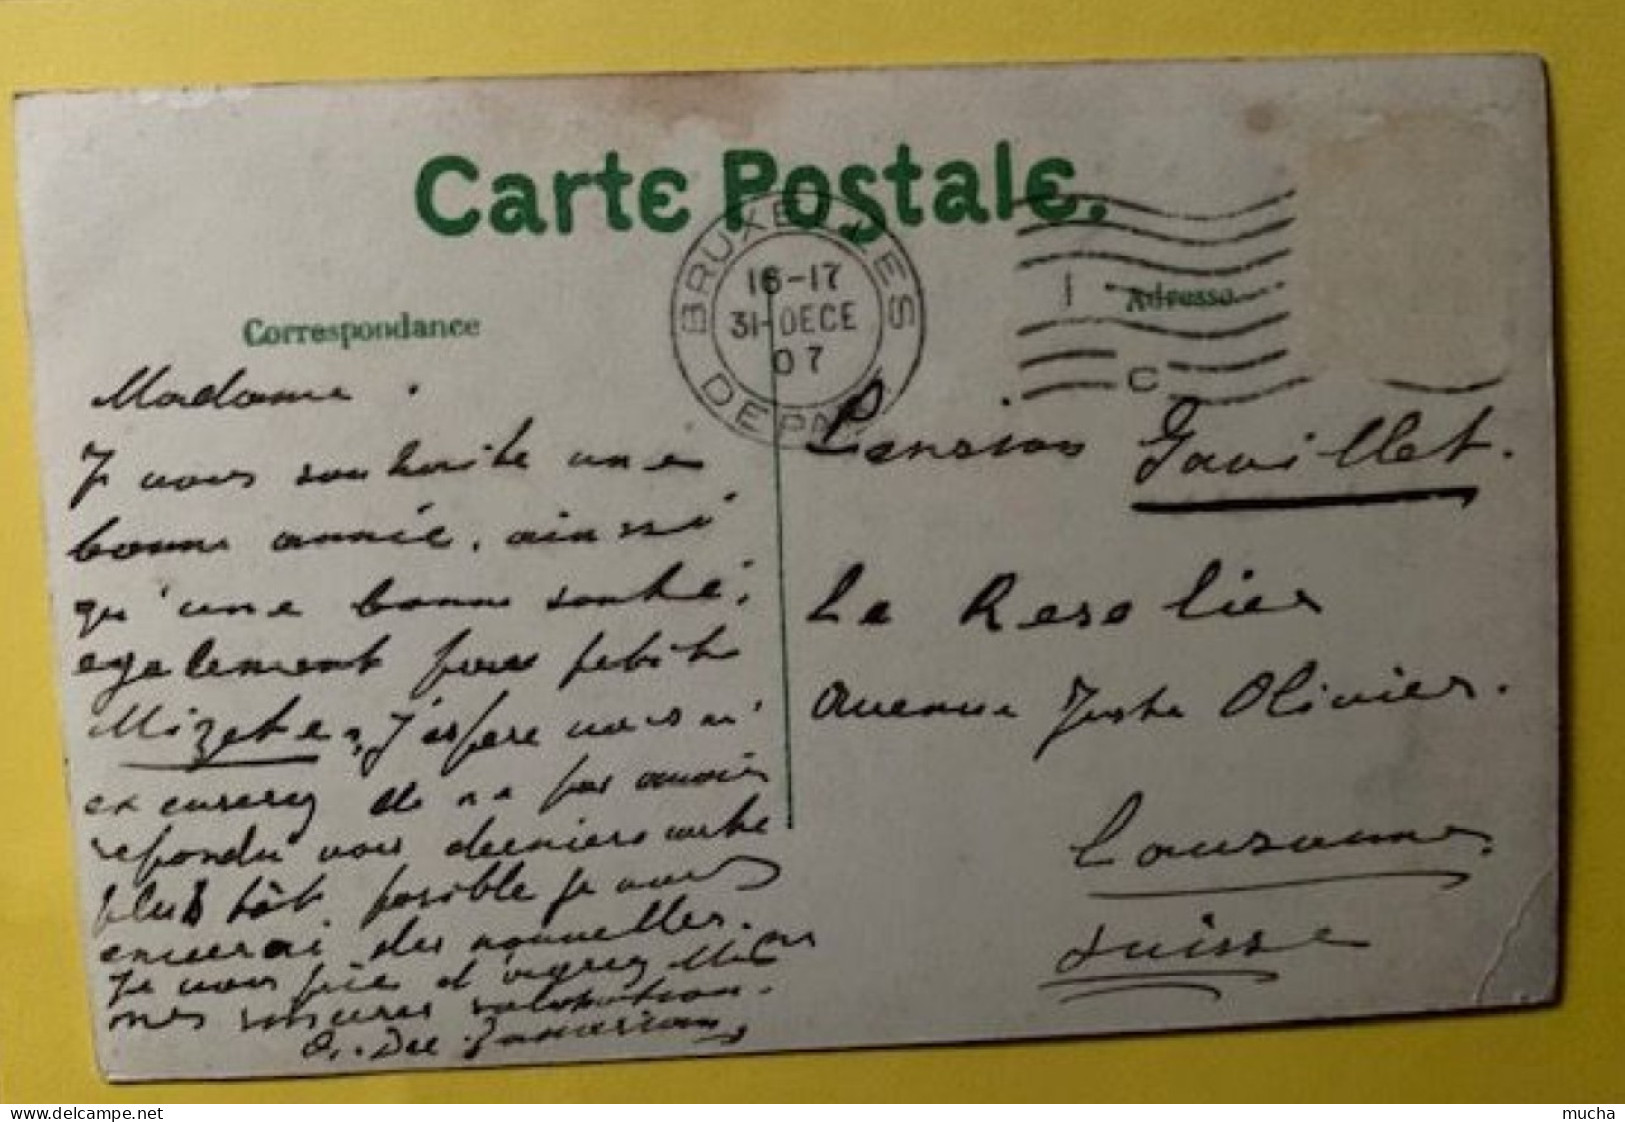 Carte Postale.
BRUXELLES
16-17
31-DECE
07
DEPART
1
C
Correspondance
Adresse
Madame.
Je vous souhaite une
bonne année, ainsi
qu'une bonne santé,
egalement pour petite
Mizete, J'espère vous m'
excuserez de ne pas avoir
repondu vos derniers carte
plus tôt posible je vous
enverai des nouvelles.
Je vous prie d'agreez Mm
mes sinceres salutation.
Pension Gavillet.
Le Rosolier
avenue Juste Olivier.
Lausanne.
Suisse
delcampe.net
mucha